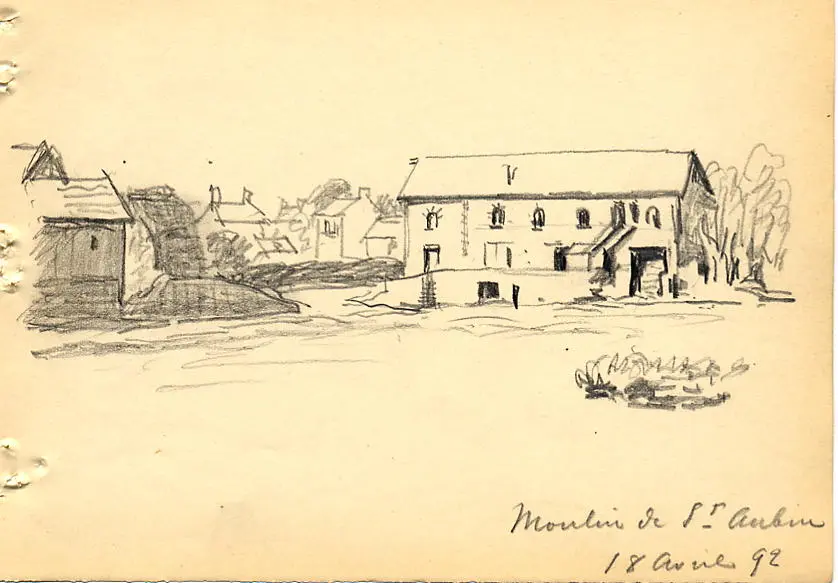 Moulin de St Aubin
18 Avril 92